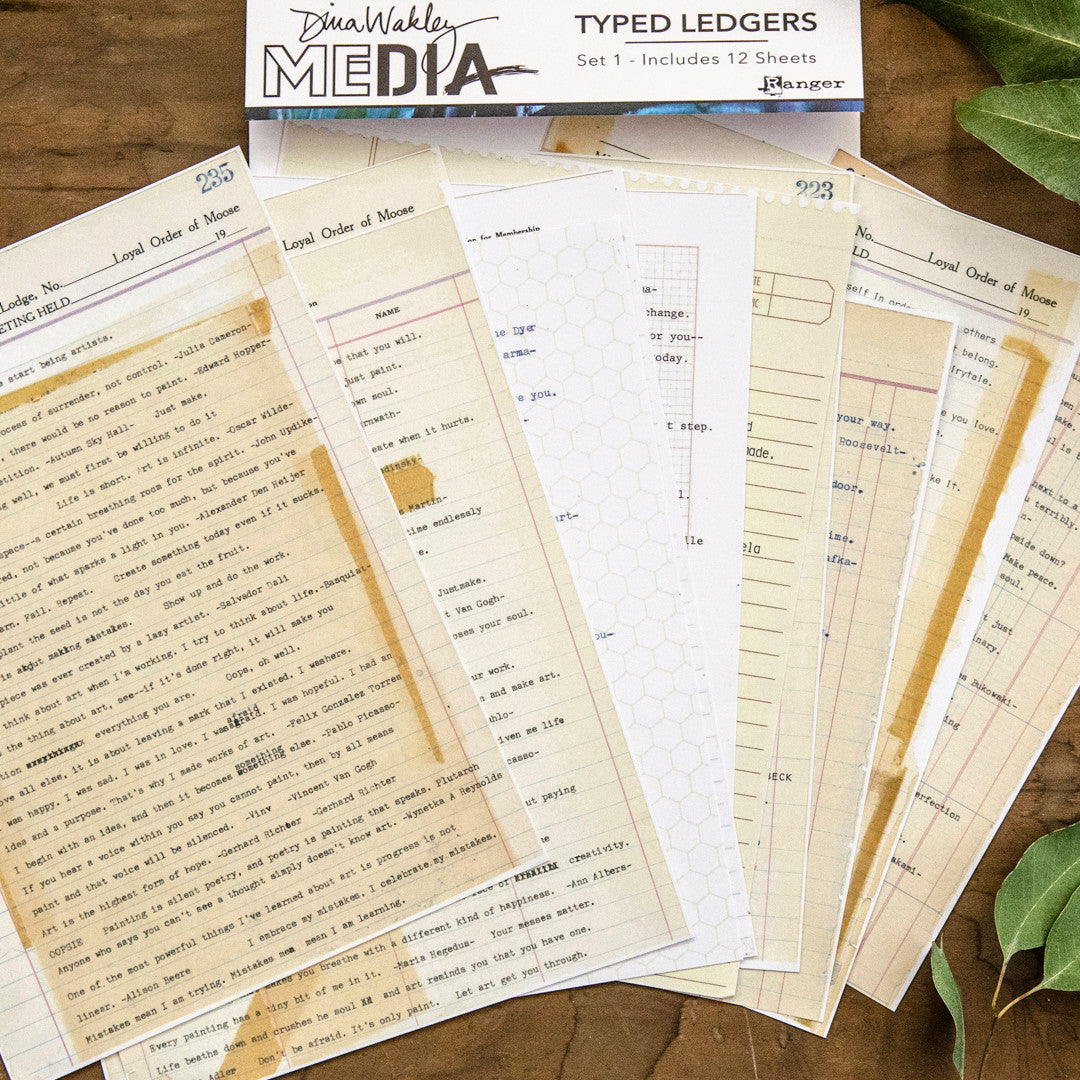 Dina Wakley
MEDIA
TYPED LEDGERS
Set 1 - Includes 12 Sheets
Ranger
235
Loyal Order of Moose
Lodge, No.
19
ETING HELD
s start being artists.
ocess of surrender, not control. -Julia Cameron-
, there would be no reason to paint. -Edward Hopper-
etition. -Autumn Sky Hall- Just make.
ng well, we must first be willing to do it
Life is short. Art is infinite. -Oscar Wilde-
space--a certain breathing room for the spirit. -John Updike-
red, not because you've done too much, but because you've
ittle of what sparks a light in you. -Alexander Den Heijer
arn. Fail. Repeat. Create something today even if it sucks.
plant the seed is not the day you eat the fruit.
is about making mistakes. Show up and do the work.
piece was ever created by a lazy artist. -Salvador Dali
think about art when I'm working. I try to think about life.-Basquiat-
the thing about art, see--if it's done right, it will make you
tion everything you are. Oops, oh well.
ove all else, it is about leaving a mark that I existed. I was here.
was happy. I was sad. I was in love. I was afraid. I was hopeful. I had an
idea and a purpose. That's why I made works of art. -Felix Gonzalez Torres
I begin with an idea, and then it becomes something else. -Pablo Picasso-
If you hear a voice within you say you cannot paint, then by all means
paint and that voice will be silenced. -Vinv -Vincent Van Gogh
Art is the highest form of hope. -Gerhard Richoer -Gerhard Richter
OOPSIE Painting is silent poetry, and poetry is painting that speaks. Plutarch
Anyone who says you can't see a thought simply doesn't know art. -Wynetka A Reynolds
One of the most powerful things I've learned about art is progress is not
linear. -Alison Beere I embrace my mistakes. I celebrate my mistakes.
Mistakes mean I am trying. Mistakes mean I am learning.
Loyal Order of Moose
NAME
be that you will.
just paint.
own soul.
rnwath-
eate when it hurts.
adinsky-
Martin-
time endlessly
e.
Justmake.
t Van Gogh-
oses your soul.
ur work.
n and make art.
hlo-
iven me life
casso-
ut paying
creativity.
makes you breathe with a different kind of happiness. -Ann Albers-
Every painting has a tiny bit of me in it. -Maria Hegedus- Your messes matter.
Life beats down and crushes he soul and art reminds you that you have one.
Adler Don't be afraid. It's only paint. Let art get you through.
on for Membership
e Dyer
arma-
e you.
art-
ou-
na-
change.
or you--
oday.
t step.
l.
lle
223
made,
ela
BECK
your way.
Roosevelt-
door.
ime.
afka-
No.
Loyal Order of Moose
LD
19
self In order
others
t belong.
irytale.
e you love.
ke It.
next to a
u terribly.
pside down?
Make peace.
soul.
t Just
inary.
es Bukowski-
ing
erfection
akami-